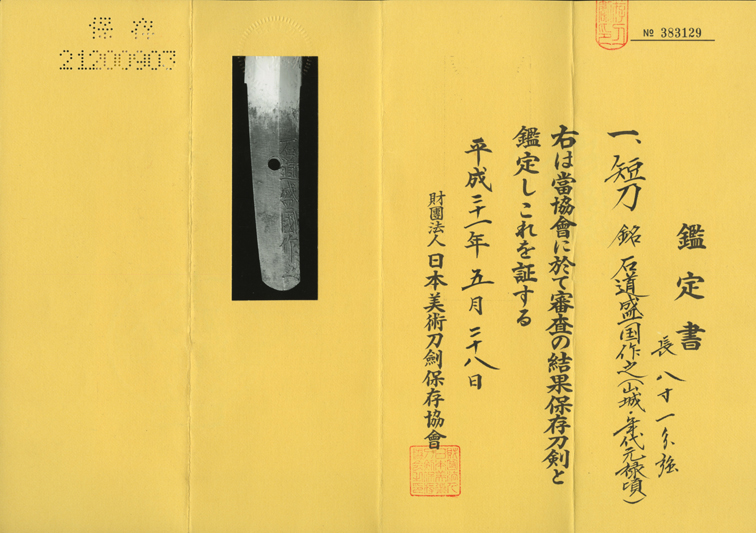 № 383129
鑑定書
長 八寸一分強
一、短刀 銘 石道盛国作之(山城・年代元禄頃)
右は當協會に於て審査の結果保存刀剣と
鑑定しこれを証する
平成二十一年 五月 二十八日
財團法人 日本美術刀劍保存協會
保存
21200903